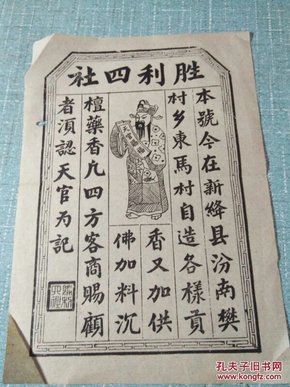 胜利四社
本號今在新绛县汾南樊
村乡東馬村自造各樣貢
香又加供
佛加料沉
檀藥香凢四方客商賜顧
者須認天官为記
孔夫子旧书网